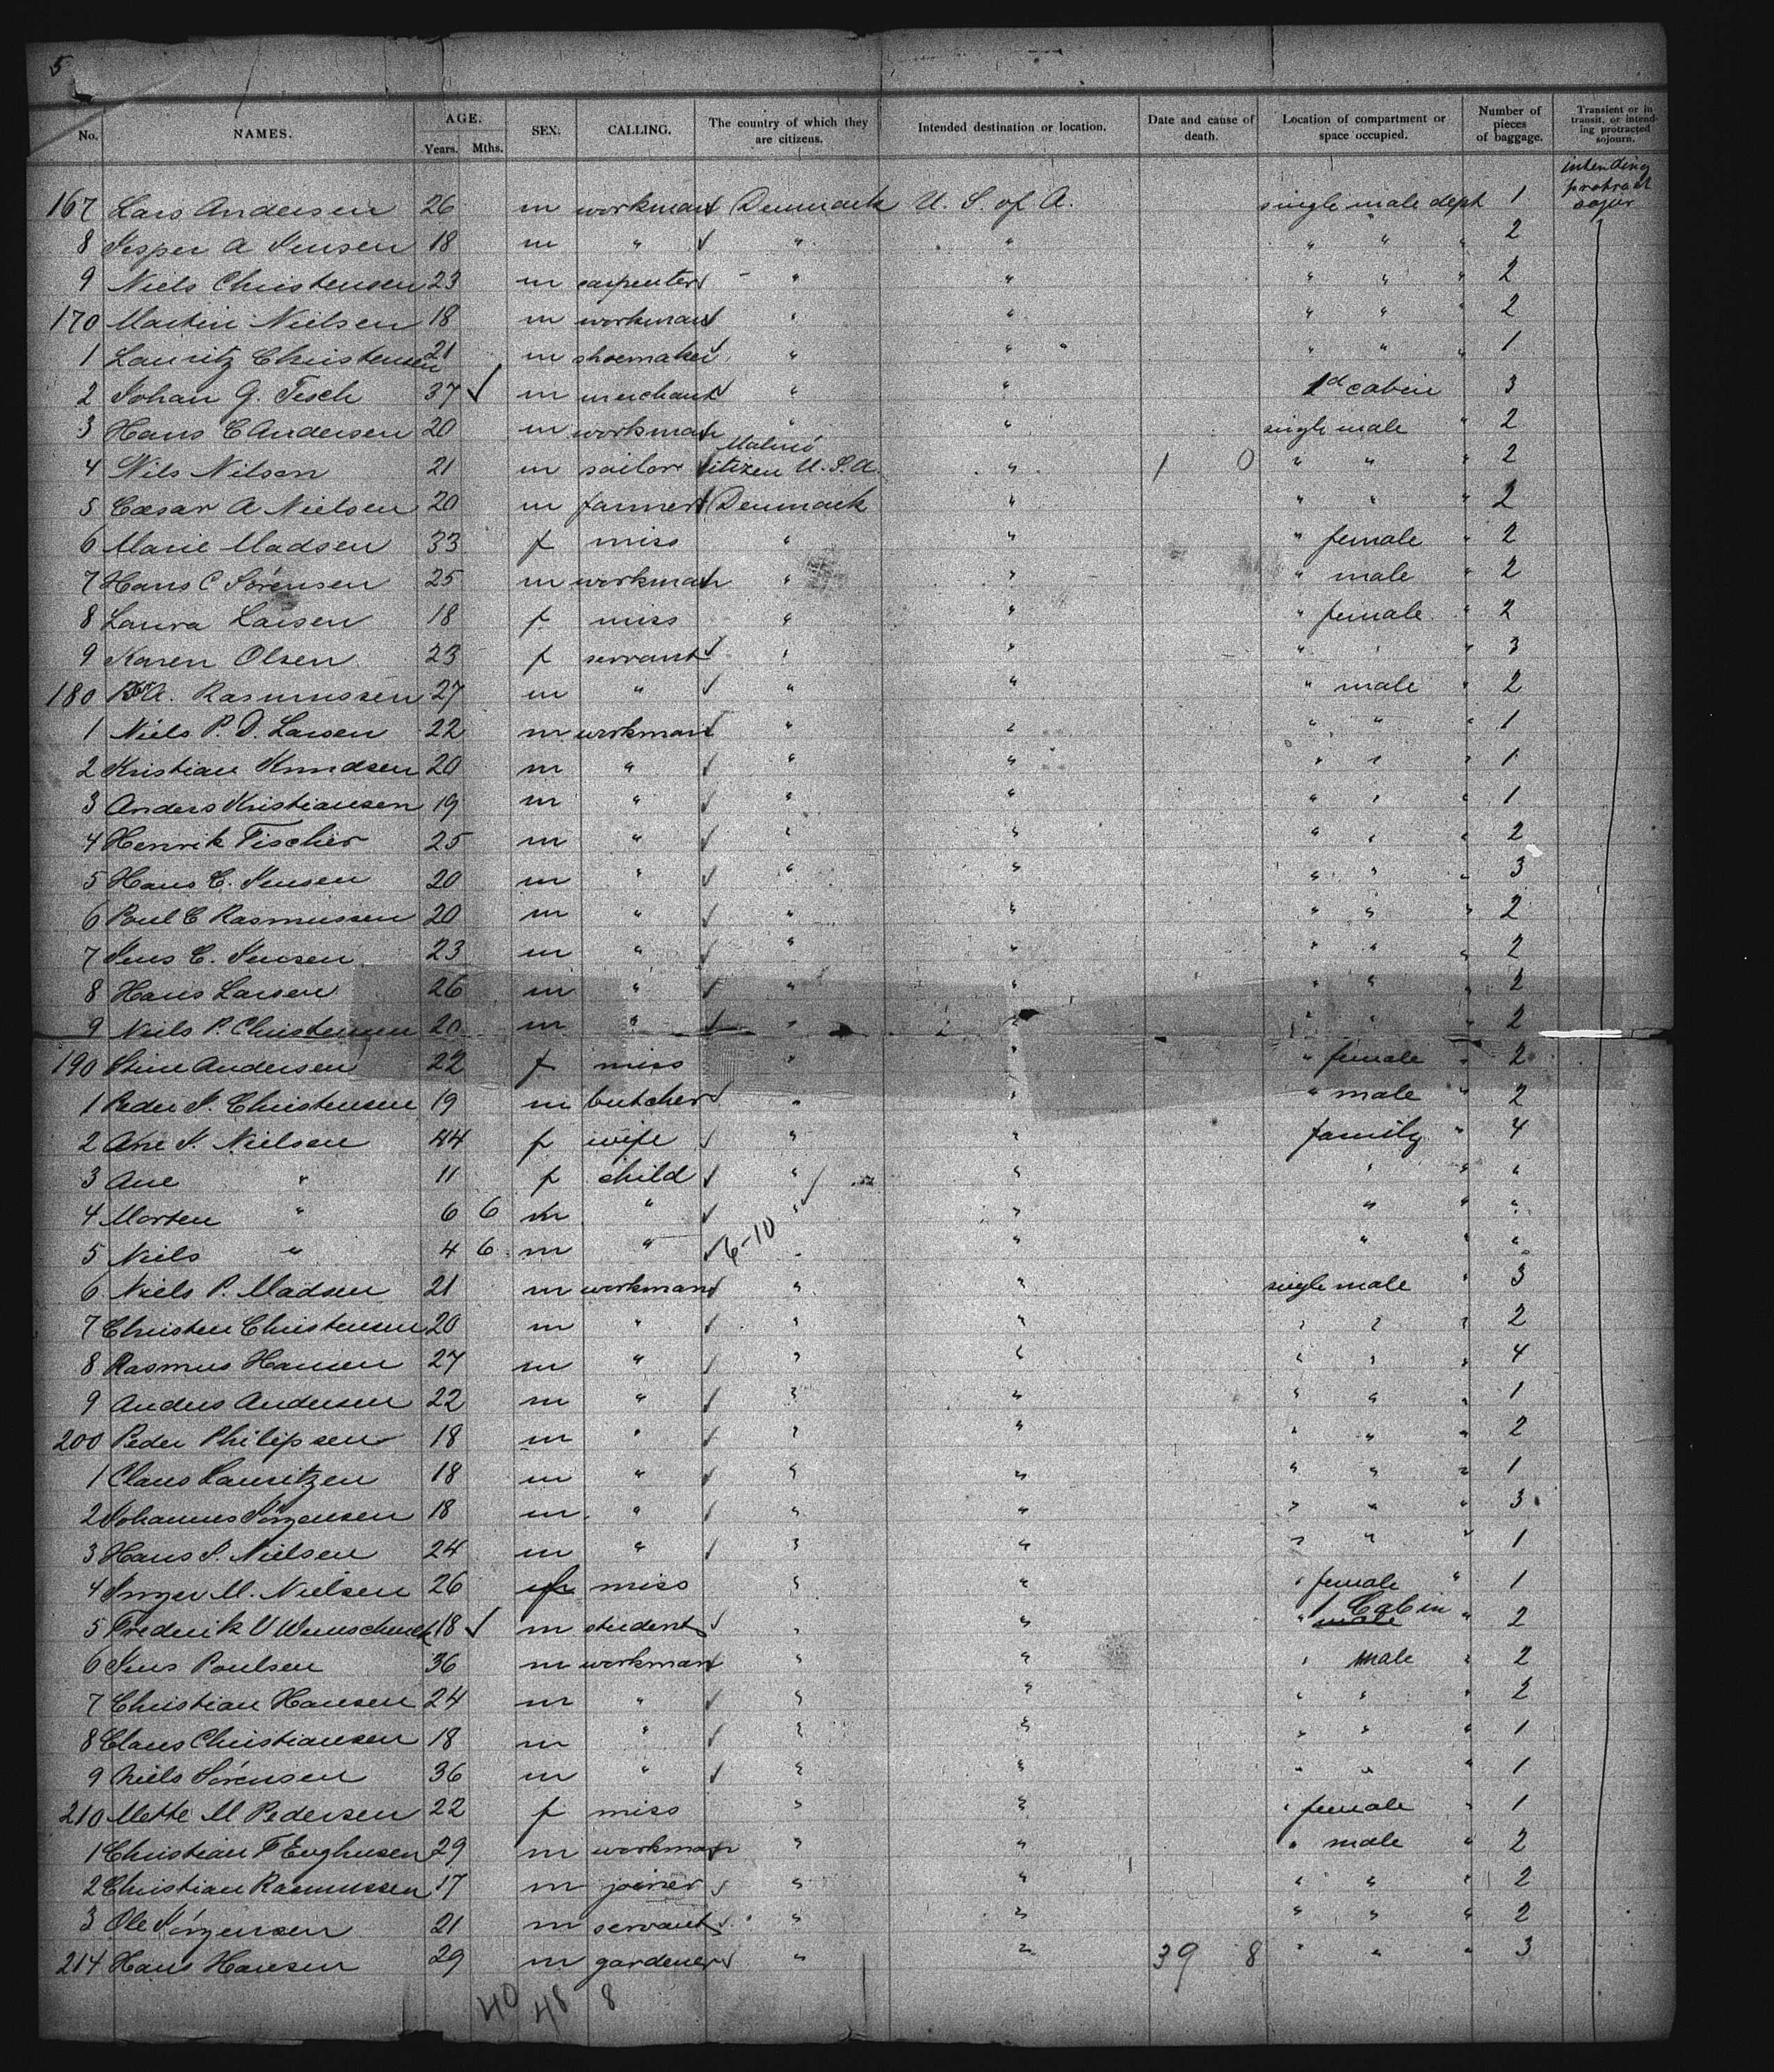 5
No. NAMES. AGE. Years. Mths. SEX. CALLING. The country of which they are citizens. Intended destination or location. Date and cause of death. Location of compartment or space occupied. Number of pieces of baggage. Transient or in transit, or intending protracted sojourn.
167 Lars Andersen 26 m workman Denmark U. S. of A. single male dept 1 intending protract sojur
8 Jesper A Jensen 18 m " " " " " " 2
9 Niels Christensen 23 m carpenter " " " " " 2
170 Martin Nielsen 18 m workman " " " " " 2
1 Lauritz Christensen 21 m shoemaker " " " " " 1
2 Johan G. Tesch 37 ✓ m merchant " " 1d cabin 3
3 Hans C Andersen 20 m workman " " single male " 2
4 Nils Nilson 21 m sailor citizen U. S. A. " 1 0 " " " 2
5 Cæsar A Nielsen 20 m farmer Denmark " " " " 2
6 Marie Madsen 33 f miss " " " female " 2
7 Hans C Sørensen 25 m workman " " " male " 2
8 Laura Larsen 18 f miss " " " female " 2
9 Karen Olsen 23 f servant " " " " " 3
180 A. Rasmussen 27 m " " " " male " 2
1 Niels P. D. Larsen 22 m workman " " " " " 1
2 Kristian Knudsen 20 m " " " " " " 1
3 Anders Kristiansen 19 m " " " " " " 1
4 Henrik Fischer 25 m " " " " " 2
5 Hans C. Jensen 20 m " " " " " " 3
6 Poul C Rasmussen 20 m " " " " " " 2
7 Jens C. Jensen 23 m " " " " " " 2
8 Hans Larsen 26 m " " " " " " 2
9 Niels P. Christensen 20 m " " " " " " 2
190 Stine Andersen 22 f miss " " " female " 2
1 Peder J. Christensen 19 m butcher " " " male " 2
2 Ane J. Nielsen 44 f wife " " family " 4
3 Ane " 11 f child " " " " "
4 Morten " 6 6 m " " " " " "
5 Niels " 4 6 m " 6-10 " " " " "
6 Niels P. Madsen 21 m workman " " single male " 3
7 Christen Christensen 20 m " " " " " " 2
8 Rasmus Hansen 27 m " " " " " " 4
9 Anders Andersen 22 m " " " " " " 1
200 Peder Philipsen 18 m " " " " " " 2
1 Claus Lauritzen 18 m " " " " " " 1
2 Johannes Jörgensen 18 m " " " " " " 3
3 Hans P. Nielsen 24 m " " " " " " 1
4 Inger M. Nielsen 26 f miss " " " female " 1
5 Frederik V 18 ✓ m student " " " 1 Cabin " 2
6 Jens Poulsen 36 m workman " " " male " 2
7 Christian Hansen 24 m " " " " " " 2
8 Claus Christiansen 18 m " " " " " " 1
9 Niels Sörensen 36 m " " " " " " 1
210 Mette M Pedersen 22 f miss " " " female " 1
1 Christian F Enghusen 29 m workman " " " male " 2
2 Christian Rasmussen 17 m joiner " " " " " 2
3 Ole Jörgensen 21 m servant " " " " " 2
214 Hans Hansen 29 m gardener " " 39 8 " " " 3
40 48 8